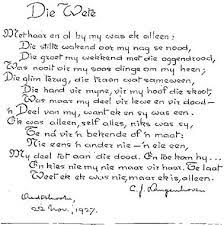 Die Wete
Met haar en al by my was ek alleen:
Die stilte wakend oor my nag se nood,
Die groet my wekkend met die oggendrood,
Was nooit vir my is soos dinge om my heen;
Die glim terug, die traan wat saamween,
Die hand vir myne, vir my hoof die skoot,
Was maar my deel vir lewe en vir dood—
'n Deel van my, want ek en sy was een.
Ek was alleen, self alles, niks was sy,
Te ná vir 'n bekende of 'n maat:
Nie eens 'n ander nie — 'n eie een
My deel tot aan die dood. En toe kom hy...
En kies nie my nie maar vir haar. Te laat
Weet ek ek was nie, maar ek is, alleen.
C. J. Langenhoven
Oudtshoorn,
22 Nov. 1927.